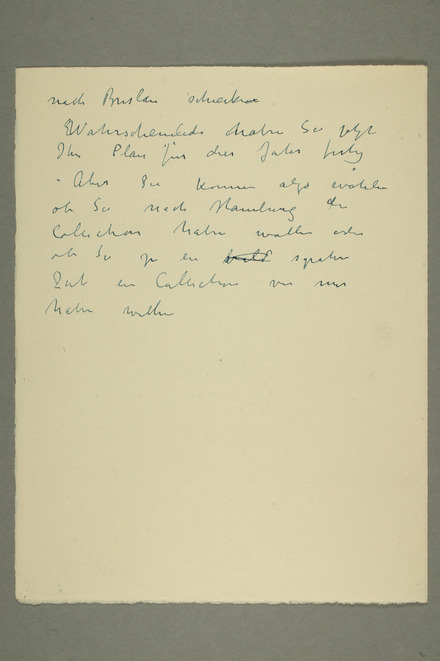 nach Breslau schreiben
Wahrscheinlich haben Sie jetzt
Ihr Plan für dies Jahr fertig
- Aber Sie können also wählen
ob Sie nach Hamburg die
Collection haben wollen oder
ob Sie zu ein bald später
Zeit ein Collection von mir
haben wollen